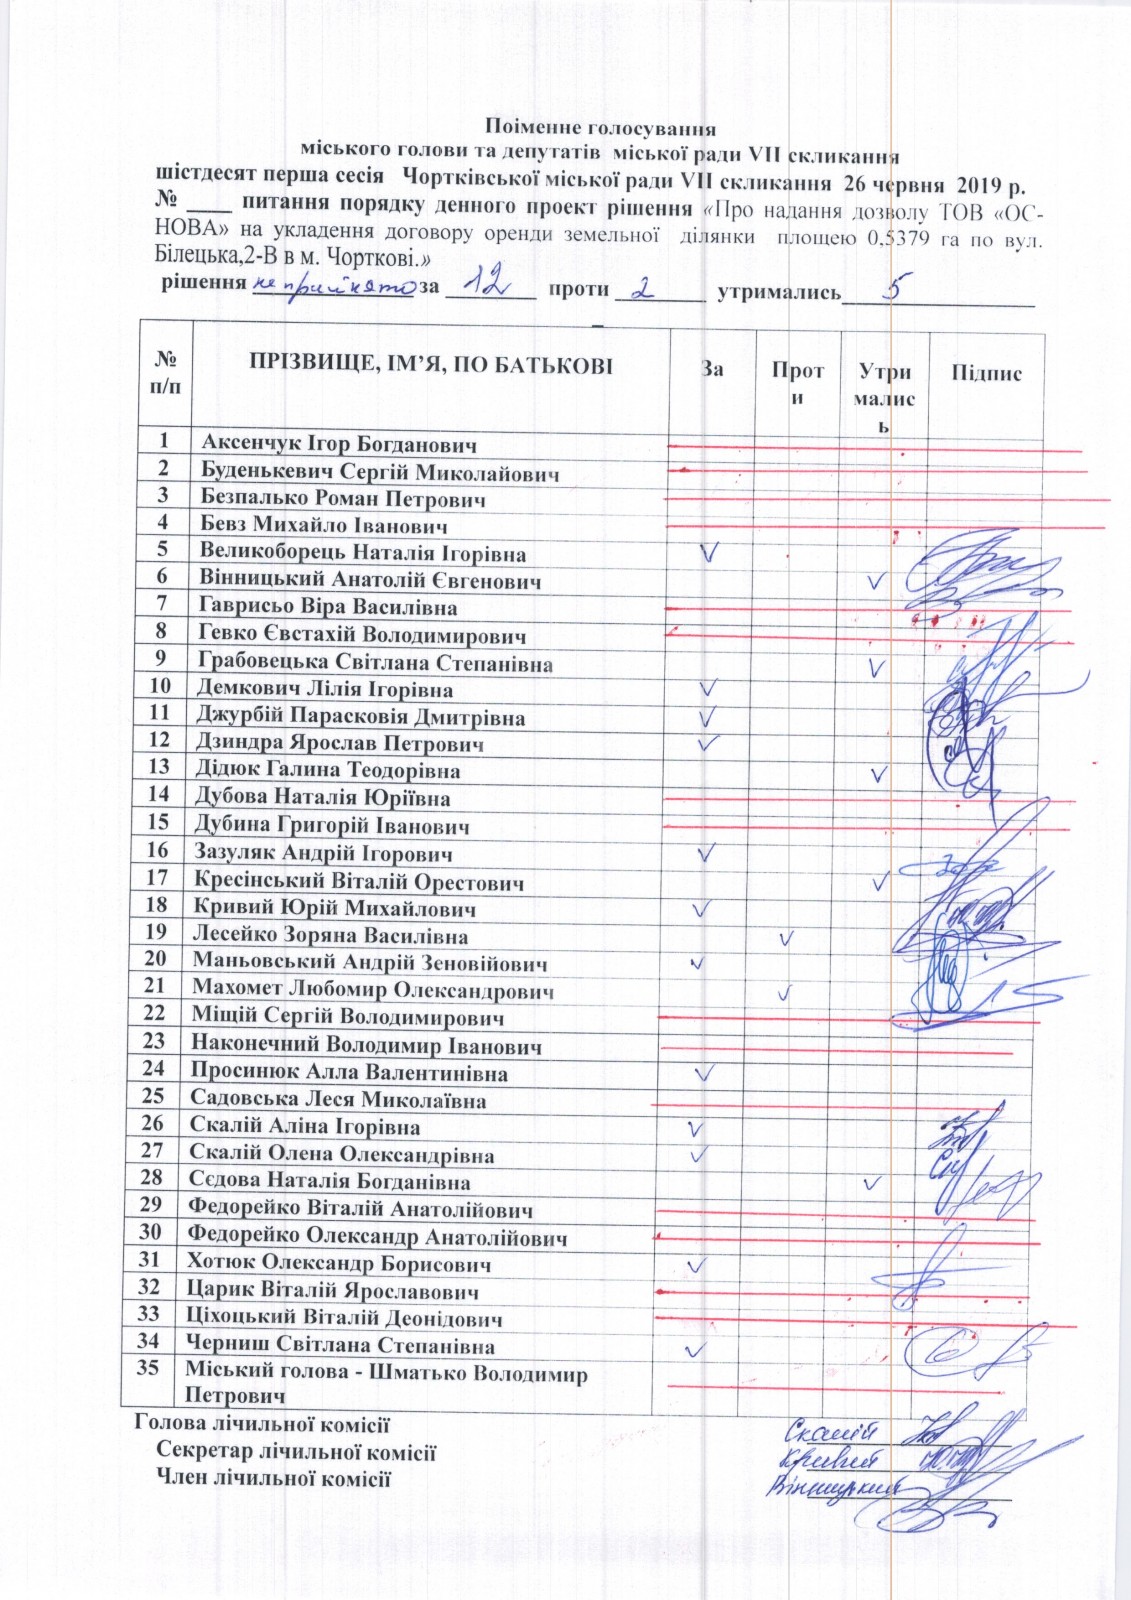 Поіменне голосування
міського голови та депутатів міської ради VII скликання
шістдесят перша сесія Чортківської міської ради VII скликання 26 червня 2019 р.
№ ____ питання порядку денного проект рішення «Про надання дозволу ТОВ «ОС-
НОВА» на укладення договору оренди земельної ділянки площею 0,5379 га по вул.
Білецька,2-В в м. Чорткові.»
рішення не прийнято за 12 проти 2 утримались 5
№ п/п ПРІЗВИЩЕ, ІМ’Я, ПО БАТЬКОВІ За Проти Утримались Підпис
1 Аксенчук Ігор Богданович
2 Буденькевич Сергій Миколайович
3 Безпалько Роман Петрович
4 Бевз Михайло Іванович
5 Великоборець Наталія Ігорівна
6 Вінницький Анатолій Євгенович
7 Гаврисьо Віра Василівна
8 Гевко Євстахій Володимирович
9 Грабовецька Світлана Степанівна
10 Демкович Лілія Ігорівна
11 Джурбій Парасковія Дмитрівна
12 Дзиндра Ярослав Петрович
13 Дідюк Галина Теодорівна
14 Дубова Наталія Юріївна
15 Дубина Григорій Іванович
16 Зазуляк Андрій Ігорович
17 Кресінський Віталій Орестович
18 Кривий Юрій Михайлович
19 Лесейко Зоряна Василівна
20 Маньовський Андрій Зеновійович
21 Махомет Любомир Олександрович
22 Міщій Сергій Володимирович
23 Наконечний Володимир Іванович
24 Просинюк Алла Валентинівна
25 Садовська Леся Миколаївна
26 Скалій Аліна Ігорівна
27 Скалій Олена Олександрівна
28 Сєдова Наталія Богданівна
29 Федорейко Віталій Анатолійович
30 Федорейко Олександр Анатолійович
31 Хотюк Олександр Борисович
32 Царик Віталій Ярославович
33 Ціхоцький Віталій Деонідович
34 Черниш Світлана Степанівна
35 Міський голова - Шматько Володимир
Петрович
Голова лічильної комісії Скалій
Секретар лічильної комісії Кривий
Член лічильної комісії Вінницький